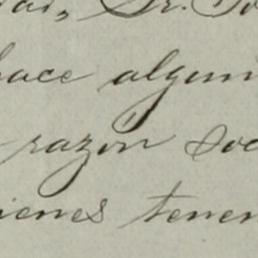 Sr.
hace algun
razon soc
ienes tener